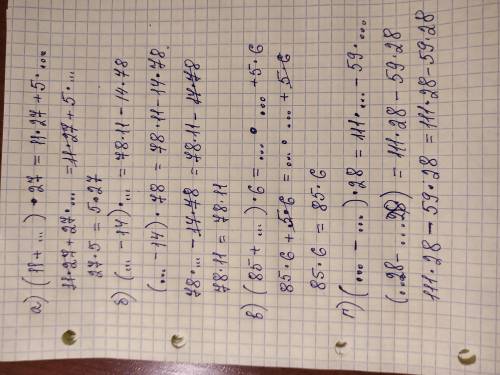 а) (11 + ...) • 27 = 11 • 27 + 5 • ...
11•27 + 27•... = 11•27 + 5•...
27•5 = 5•27
б) (... - 14) • ... = 78•11 - 14•78
(... - 14) • 78 = 78•11 - 14•78.
78•... - 14•78 = 78•11 - 14•78
78•11 = 78•11
в) (85 + ...) • 6 = ... • ... + 5•6
85•6 + 5•6 = ... • ... + 5•6
85•6 = 85•6
г) (... - ...) • 28 = 111•... - 59•...
(...•28 - ...28) = 111•28 - 59•28
111•28 - 59•28 = 111•28 - 59•28